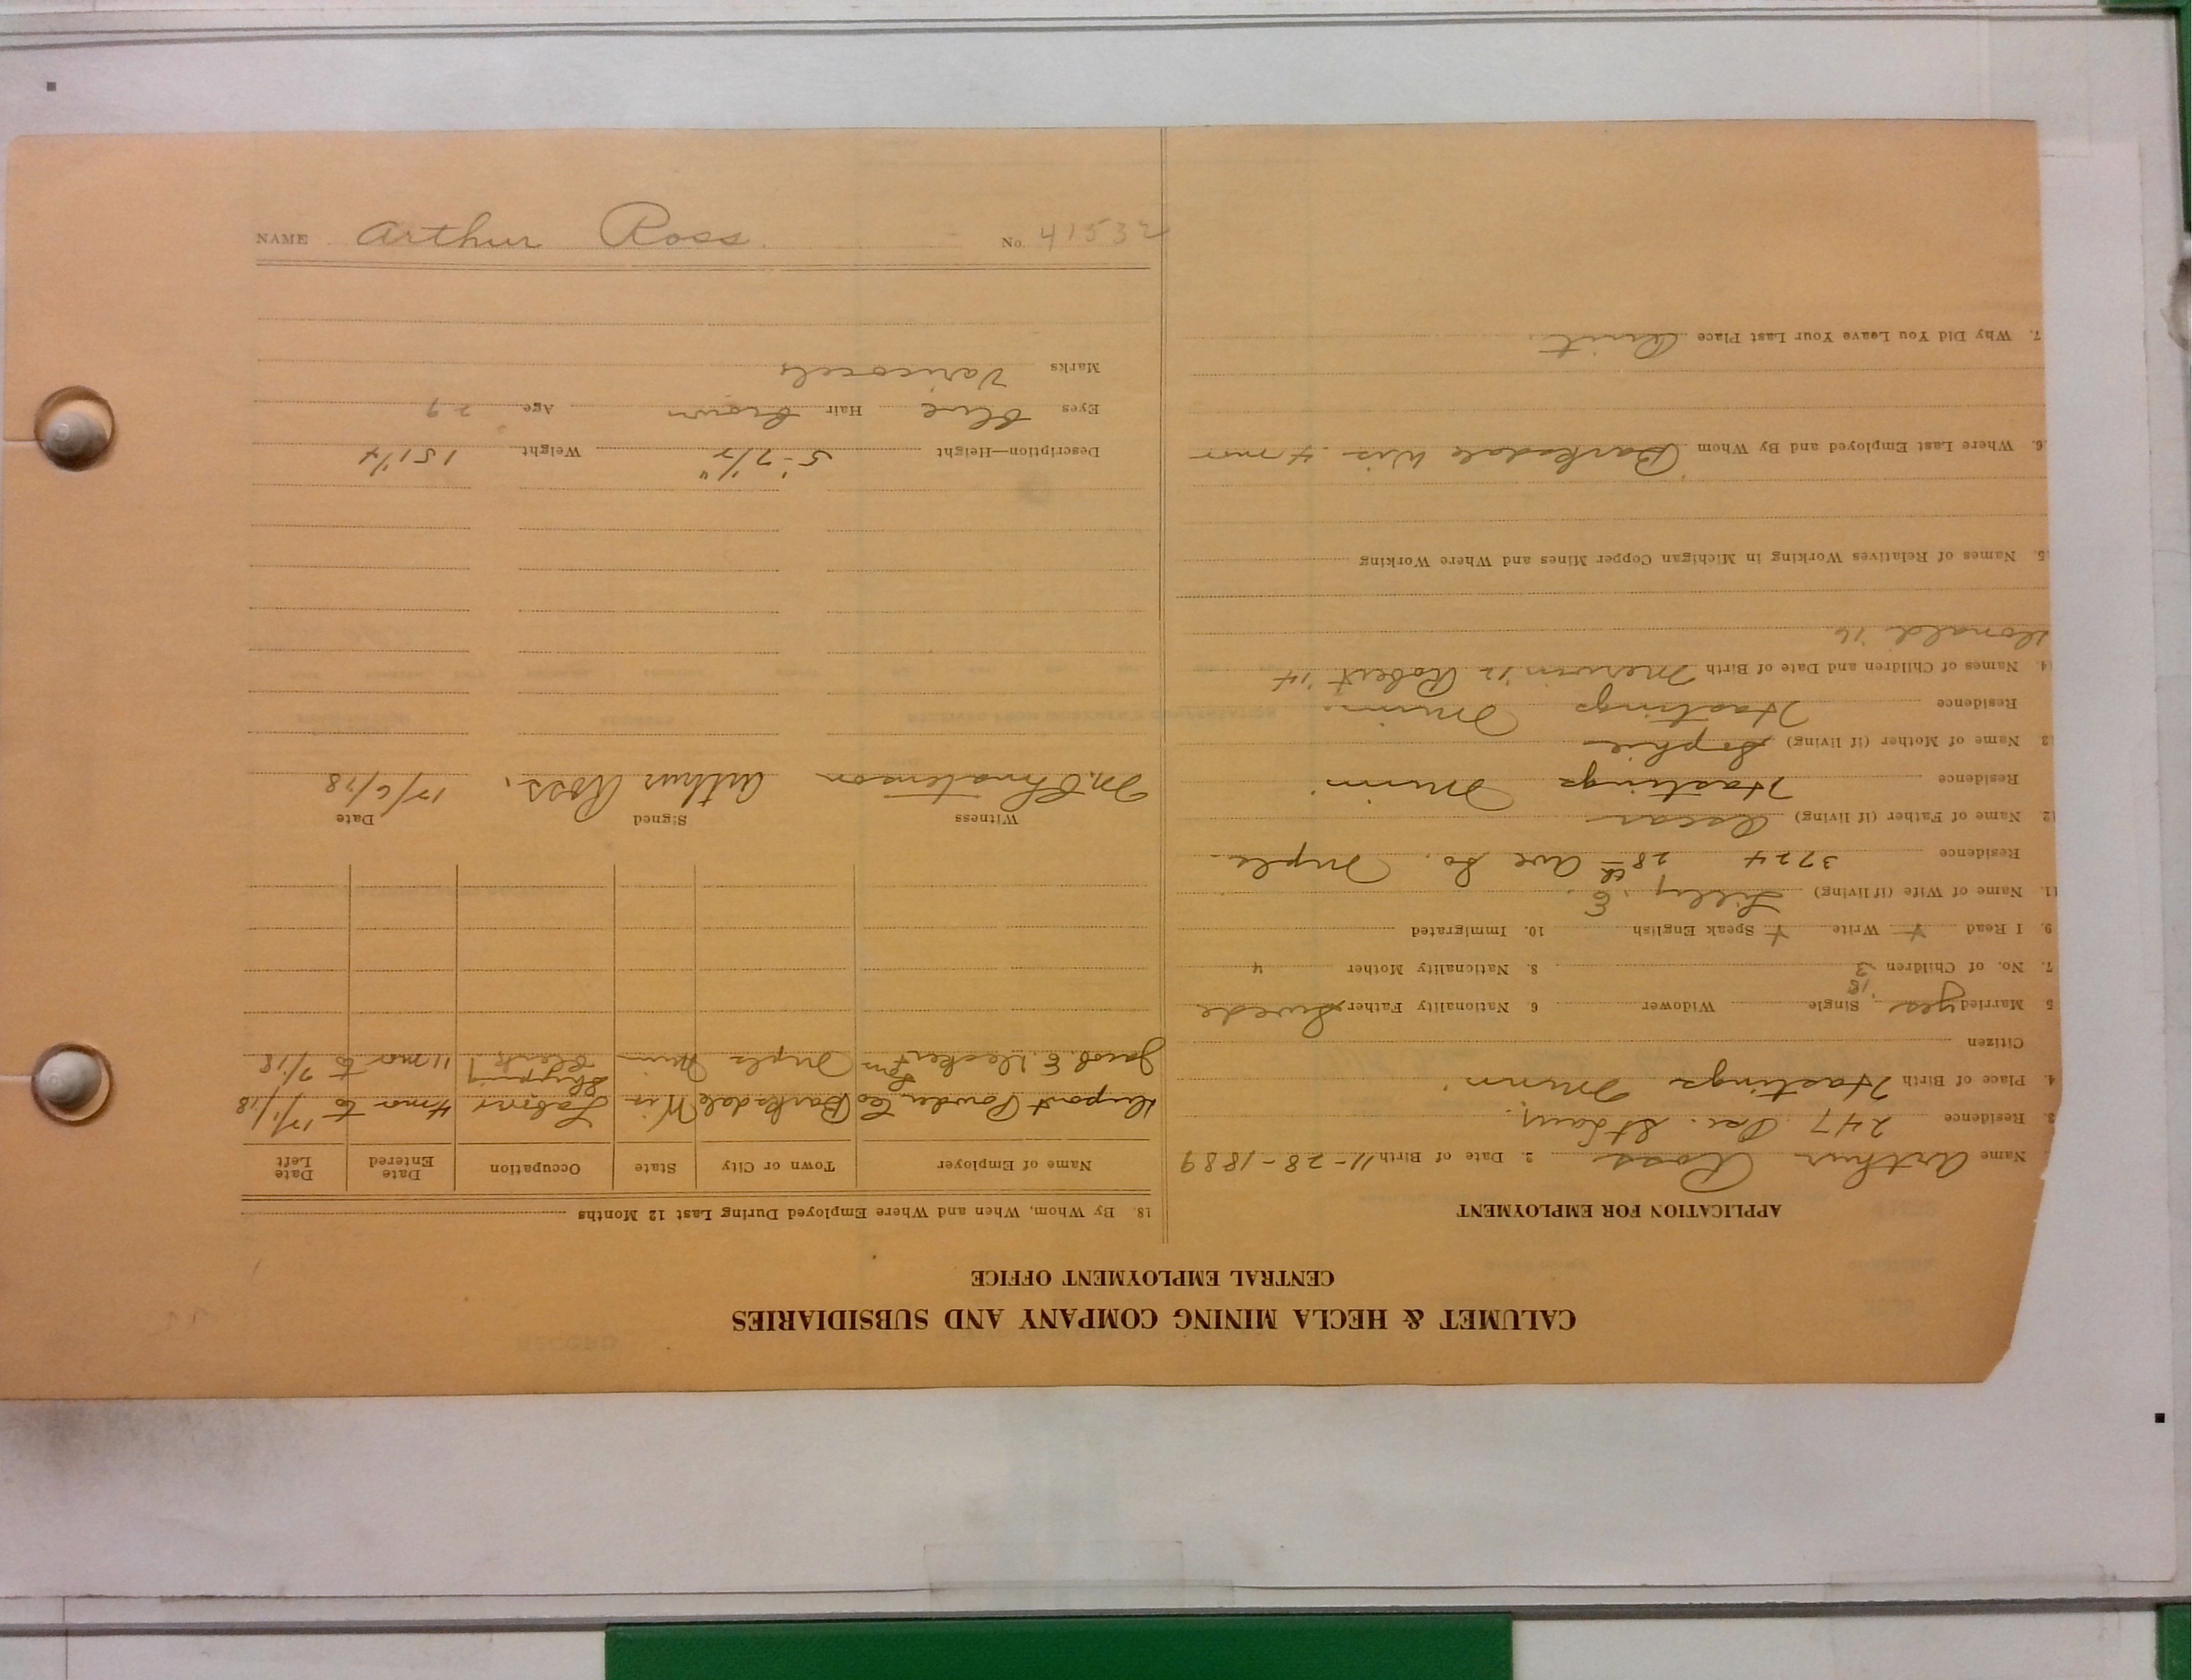 CALUMET & HECLA MINING COMPANY AND SUBSIDIARIES
CENTRAL EMPLOYMENT OFFICE
APPLICATION FOR EMPLOYMENT
Name Arthur Ross 2. Date of Birth 11-28-1889
3. Residence 247 St
4. Place of Birth Hastings Minn
Citizen
5 Married yes '18 Single Widower 6 Nationality Father Swede
7. No. of Children 3 8. Nationality Mother 4
9. I Read + Write + Speak English 10. Immigrated
11. Name of Wife (if living) Lilly E.
Residence 3724 28th Ave So. Mpls.
12 Name of Father (if living) Oscar
Residence Hastings Minn
13 Name of Mother (if living) Sophie
Residence Hastings Minn.
14. Names of Children and Date of Birth Mervin '12 Robert '14
Donald '16
15. Names of Relatives Working in Michigan Copper Mines and Where Working
16. Where Last Employed and By Whom Barksdale Wis 4 mos
7. Why Did You Leave Your Last Place Quit.
18. By Whom, When and Where Employed During Last 12 Months
Name of Employer Town or City State Occupation Date Entered Date Left
Dupont Powder Co Barksdale Wis Labor 4 mo to 12/1/18
Jacob E. Decker & Sons Mpls Min Shipping Clerk 11 mo to 7/18
Witness Signed Date
M. Christenson Arthur Ross. 12/6/18
Description—Height 5'-7 1/2" Weight 151 1/4
Eyes Blue Hair brown Age 29
Marks Varicocele
NAME Arthur Ross. No. 41532